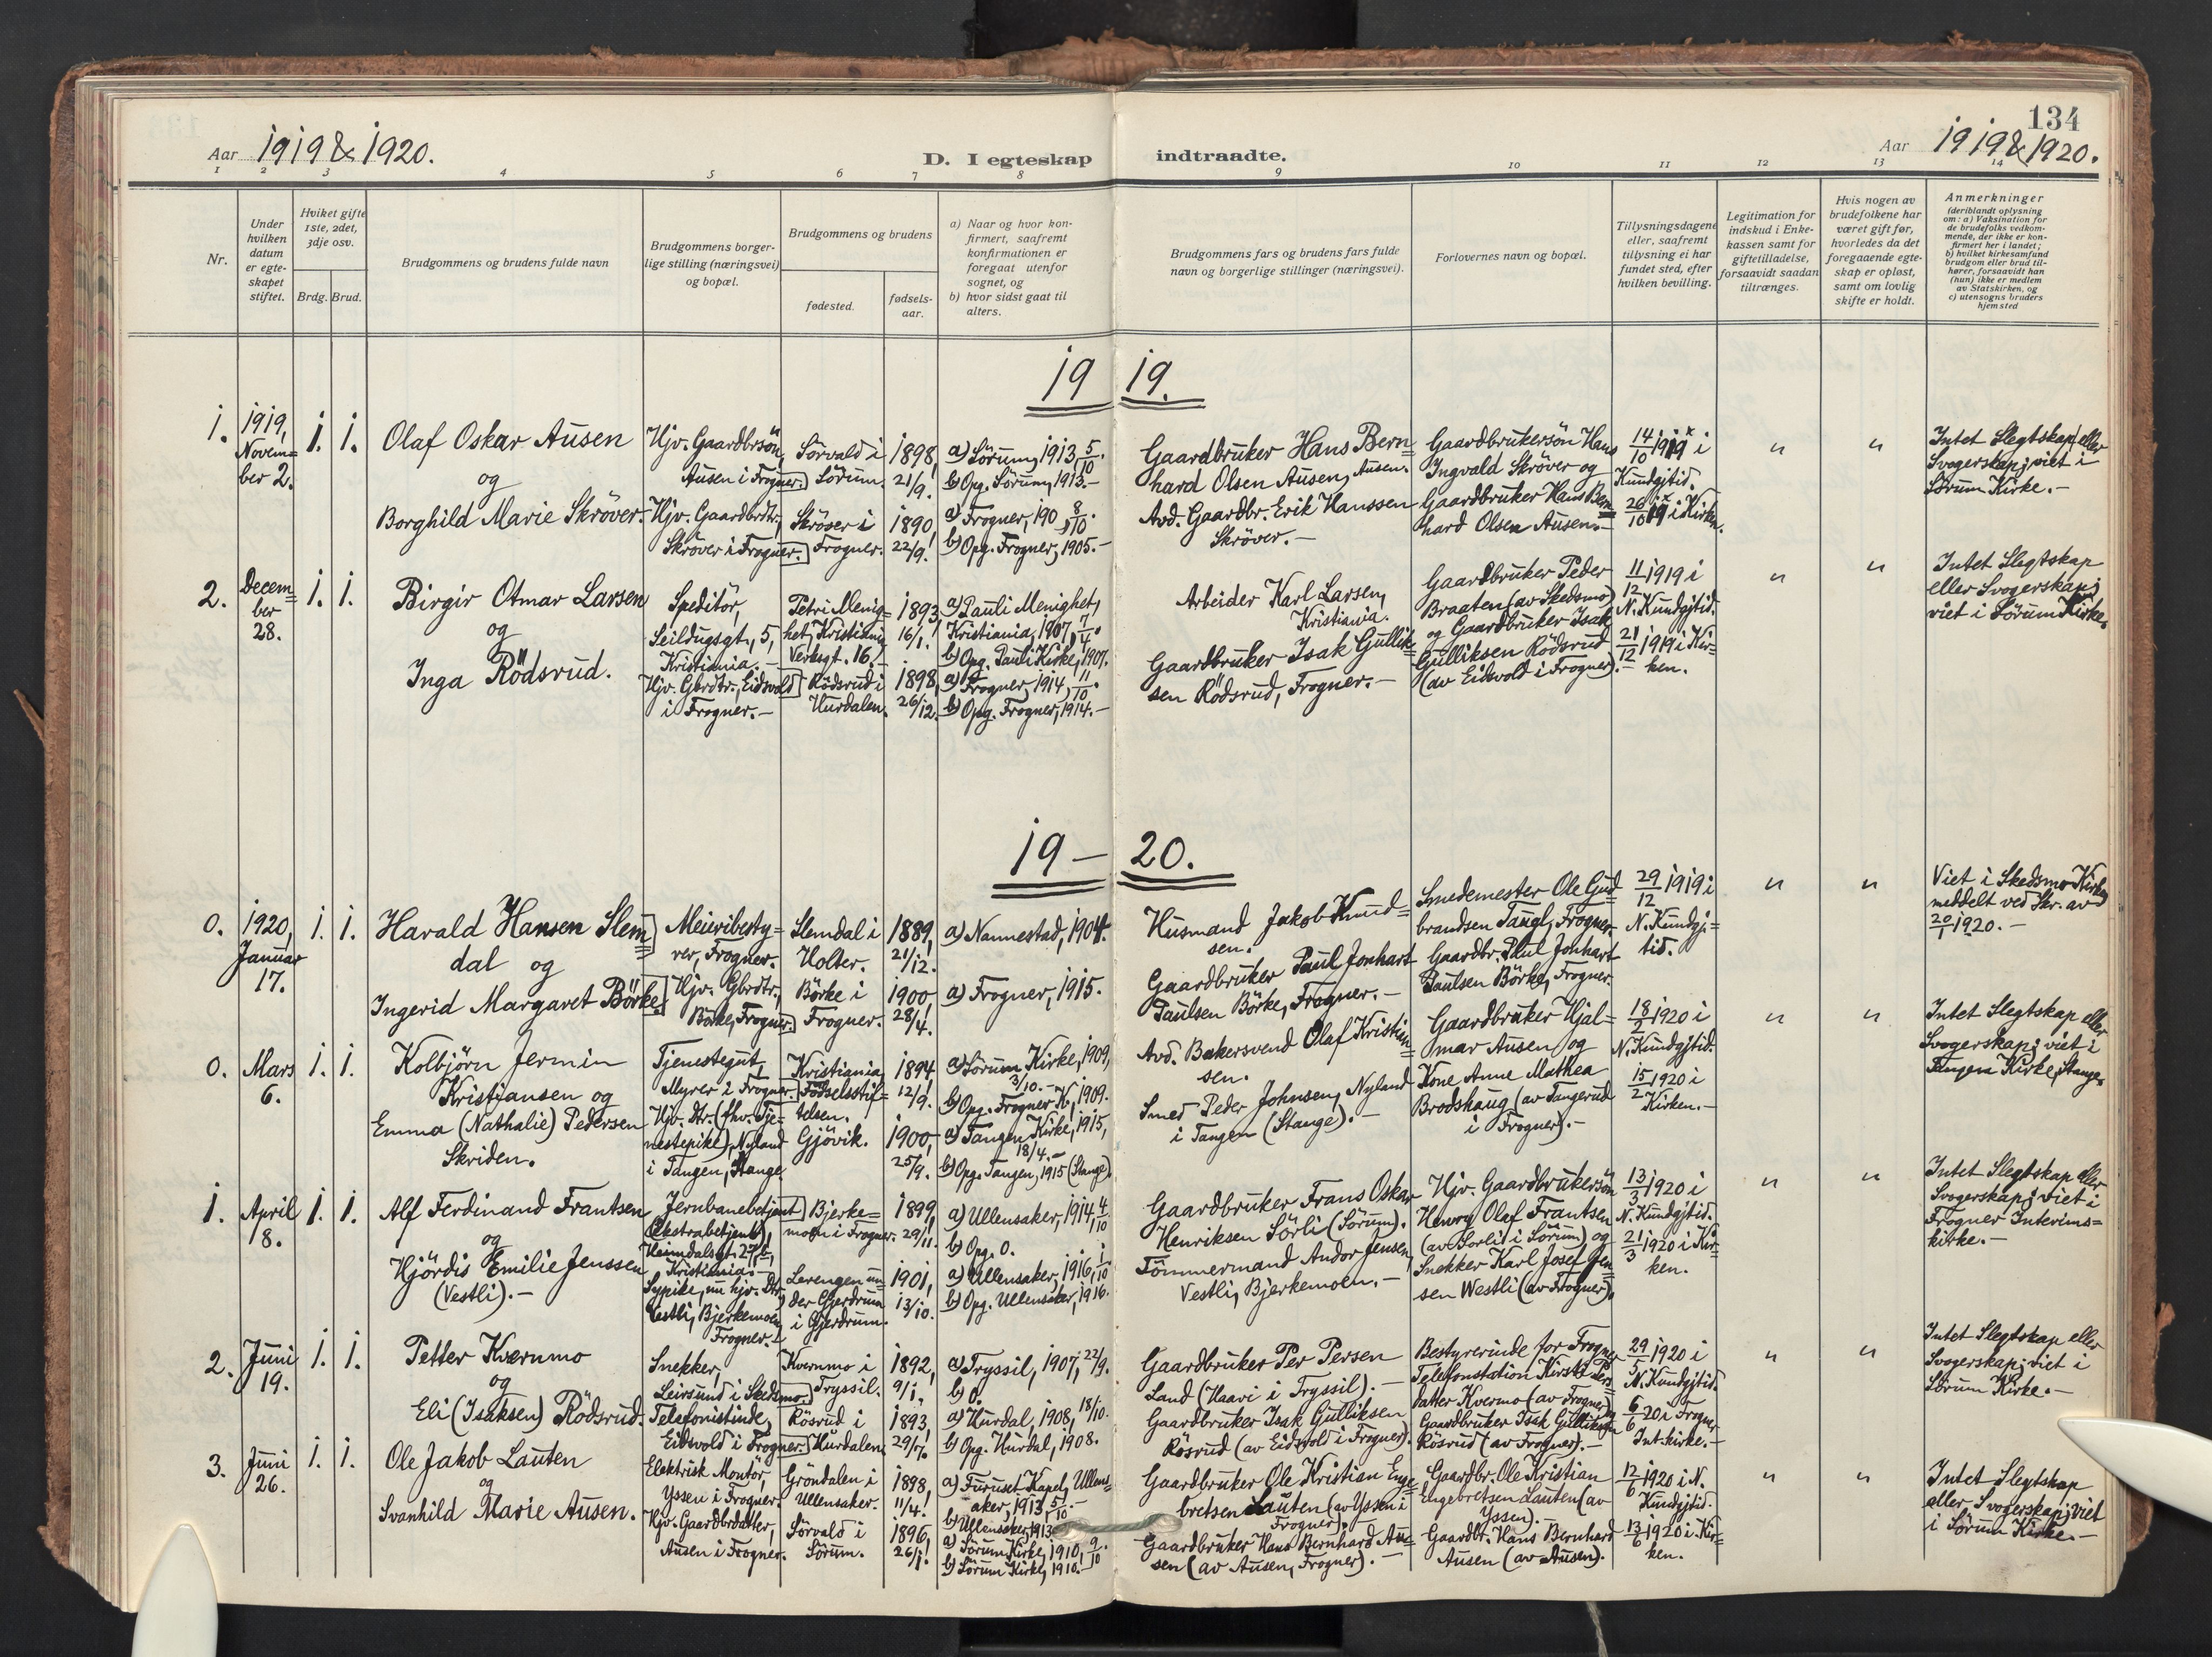 134
Aar 1919 & 1920.
D. I egteskap indtraadte.
Aar 1919 & 1920.
1 2 3 4 5 6 7 8 9 10 11 12 13 14
Nr.
Under
hvilken
datum
er egte-
skapet
stiftet.
Hviket gifte
1ste, 2det,
3dje osv.
Brdg. Brud.
Brudgommens og brudens fulde navn
Brudgommens borger-
lige stilling (næringsvei)
og bopæl.
Brudgommens og brudens
fødested.
fødsels-
aar.
a) Naar og hvor kon-
firmert, saafremt
konfirmationen er
foregaat utenfor
sognet, og
b) hvor sidst gaat til
alters.
Brudgommens fars og brudens fars fulde
navn og borgerlige stillinger (næringsvei).
Forlovernes navn og bopæl.
Tillysningsdagene
eller, saafremt
tillysning ei har
fundet sted, efter
hvilken bevilling.
Legitimation for
indskud i Enke-
kassen samt for
giftetilladelse,
forsaavidt saadan
tiltrænges.
Hvis nogen av
brudefolkene har
været gift før,
hvorledes da det
foregaaende egte-
skap er opløst,
samt om lovlig
skifte er holdt.
Anmerkninger
(deriblandt oplysning
om: a) Vaksination for
de brudefolks vedkom-
mende, der ikke er kon-
firmert her i landet;
b) hvilket kirkesamfund
brudgom eller brud til-
hører, forsaavidt han
(hun) ikke er medlem
av Statskirken, og
c) utensogns bruders
hjemsted
19 19.
1.
1919,
Novem=
ber 2.
1. 1.
Olaf Oskar Ausen
og
Borghild Marie Skröver.
Hjv. Gaardbrsön,
Ausen i Frogner.
Hjv. Gaardbrdtr.,
Skröver i Frogner.
Sörvald i
Sörum.
Skröver i
Frogner.
1898,
21/9.
1890,
22/9.
a) Sörum, 1913, 5/10.
b) Opg. Sörum, 1913.-
a) Frogner, 190 8/10.
b) Opg. Frogner, 1905.-
Gaardbruker Hans Bern=
hard Olsen Ausen, Ausen.
Avd. Gaardbr. Erik Hanssen
Skröver.-
Gaardbrukersön Hans
Ingvald Skröver og
Gaardbruker Hans Bern=
hard Olsen Ausen.-
14/10 1919 i
Kundgjtid.
26/10 19 i Kirken.
"
"
Intet Slegtskap eller
Svogerskap; viet i
Sörum Kirke.-
2.
Decem=
ber
28.
1. 1.
Birgir Otmar Larsen
og
Inga Rödsrud.
Speditör,
Seildugsgt. 5,
Kristiania.-
Hjv. Gbrdtr., Eidsvold
i Frogner.-
Petri Menig=
het, Kristiania
Verksgt. 16.
Rödsrud i
Hurdalen.
1893,
16/1.
1898,
26/12.
a) Pauli Menighet,
Kristiania, 1907, 7/4.
b) Opg. Pauli Kirke, 1907.
a) Frogner, 1914, 11/10.
b) Opg. Frogner, 1914.-
Arbeider Karl Larsen,
Kristiania.
Gaardbruker Isak Gullik=
sen Rödsrud, Frogner.-
Gaardbruker Peder
Braaten (av Skedsmo)
og Gaardbruker Isak
Gulliksen Rödsrud
(av Eidsvold i Frogner).-
11/12 1919 i
N. Kundgjtid.
21/12 1919 i Kir=
ken.
"
"
Intet Slegtskap
eller Svogerskap;
viet i Sörum Kirke.
19 – 20.
0.
1920,
Januar
17.
1. 1.
Harald Hansen Slem=
dal og
Ingerid Margaret Börke.
Meieribesty=
rer, Frogner.
Hjv. Gbrdtr.,
Börke, Frogner.
Slemdal i
Holter.
Börke i
Frogner.
1889,
21/12.
1900,
28/4.
a) Nannestad, 1904.
a) Frogner, 1915.
Husmand Jakob Knud=
sen.
Gaardbruker Paul Jonhart
Paulsen Börke, Frogner.-
Smedemester Ole Gud=
brandsen Taugl, Frogner.
Gaardbr. Paul Jonhart
Paulsen Börke, Frogner.
29/12 1919 i
N. Kundgj.=
tid.
"
"
Viet i Skedsmo Kirke
meddelt ved Skr. av
20/1 1920.-
0.
Mars
6.
1. 1.
Kolbjörn Jermin
Kristiansen og
Emma (Nathalie) Pedersen
Skriden.
Tjenestegut,
Myrer i Frogner.
Hjv. Dtr. (fhv. Tje=
nestepike), Nyland
i Tangen, Stange
Kristiania
Födselsstif=
telsen.
Gjövik.
1894,
12/9.
1900,
25/9.
a) Sörum Kirke, 1909,
3/10.-
b) Opg. Frogner K., 1909.
a) Tangen Kirke, 1915,
18/4.-
b) Opg. Tangen, 1915 (Stange).
Avd. Bakersvend Olaf Kristian=
sen.
Smed Peder Johnsen, Nyland
i Tangen (Stange).-
Gaardbruker Hjal=
mar Ausen og
Kone Anne Mathea
Brodshaug (av Tangerud
i Frogner).-
18/2 1920 i
N. Kundgjtid.
15/2 1920 i
Kirken.-
"
"
Intet Slegtskap eller
Svogerskap; viet i
Tangen Kirke, Stange.
1.
April
18.
1. 1.
Alf Ferdinand Frantsen
og
Hjördis Emilie Jenssen
(Vestli).-
Jernbanebetjent
(Ekstrabetjent),
Heimdalsgt. 27,
Kristiania.-
Sypike, nu hjv. Dtr.
Vestli, Bjerkemoen,
Frogner.-
Bjerke=
moen i Frogner.
Lerengen un=
der Gjerdrum
i Gjerdrum.
1899,
29/11.
1901,
13/10.
a) Ullensaker, 1914, 4/10
b) Opg. 0.
a) Ullensaker, 1916, 1/10
b) Opg. Ullensaker, 1916.
Gaardbruker Frans Oskar
Henriksen Sörli (Sörum).
Tömmermand Andor Jensen,
Vestli, Bjerkemoen.-
Hjv. Gaardbrukersön
Henry Olaf Frantsen
(av Sorli i Sörum) og
Snekker Karl Josef Jen=
sen Westli (av Frogner).
13/3 1920 i
N. Kundgjtid.
21/3 1920 i Kir=
ken.
"
"
Intet Slegtskap eller
Svogerskap; viet i
Frogner Interims=
kirke.-
2.
Juni
19.
1. 1.
Petter Kvernmo
og
Eli (Isaksen) Rödsrud.
Snekker,
Leirsund i Skedsmo.
Telefonistinde,
Eidsvold i Frogner.
Kvernmo i
Tryssil.
Rösrud i
Hurdalen.
1892,
9/1.
1893,
a) Tryssil, 1907, 22/9.
b) 0.
a) Hurdal, 1908, 18/10.
b) Opg. Hurdal, 1908.
Gaardbruker Per Persen
Land (Haavi i Tryssil).-
Gaardbruker Isak Gulliksen
Rösrud (av Eidsvold i Frogner).
Bestyrerinde for Frogner
Telefonstation Kirsti Pers=
datter Kvermo (av Frogner) og
Gaardbruker Isak Gulliksen
Rösrud (av Frogner).-
29/5 1920 i
N. Kundgjtid.
6/6 20 i Frogner
Int.kirke.-
"
"
Intet Slegtskap eller
Svogerskap; viet i
Sörum Kirke.-
3.
Juni
26.
1. 1.
Ole Jakob Lauten
og
Svanhild Marie Ausen.
Elektrisk Montör,
Yssen i Frogner.
Hjv. Gaardbrdatter,
Ausen i Frogner.
Gröndalen i
Ullensaker.
Sörvald i
Sörum.
1898,
11/4.
1896,
26/1.
a) Furuset Kapel, Ullens=
aker, 1913, 5/10.-
b) Ullensaker, 1913
a) Sörum Kirke, 1910, 9/10.
b) Sörum Kirke, 1910.-
Gaardbruker Ole Kristian Enge=
bretsen Lauten (av Yssen i
Frogner).-
Gaardbruker Hans Bernhard Au=
sen (av Ausen, Frogner).-
Gaardbr. Ole Kristian
Engebretsen Lauten (av
Yssen).-
Gaardbr. Hans Bernhard
Ausen (av Ausen).
12/6 1920 i N.
Kundgjtid.
13/6 1920 i Kir=
ken.
"
"
Intet Slegtskap
eller Svogerskap; viet
i Sörum Kirke.-